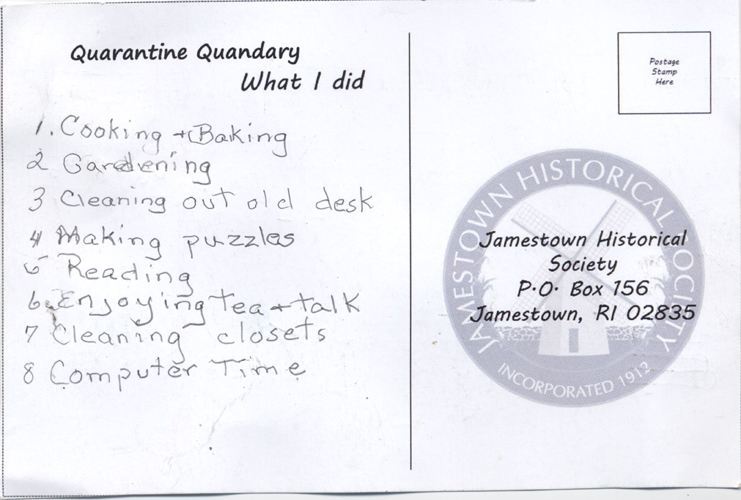 Quarantine Quandary
What I did
1. Cooking + Baking
2 Gardening
3 Cleaning out old desk
4 Making puzzles
5 Reading
6. Enjoying tea + talk
7 Cleaning closets
8 Computer Time
Postage
Stamp
Here
JAMESTOWN HISTORICAL SOCIETY
Jamestown Historical
Society
P.O. Box 156
Jamestown, RI 02835
INCORPORATED 1912